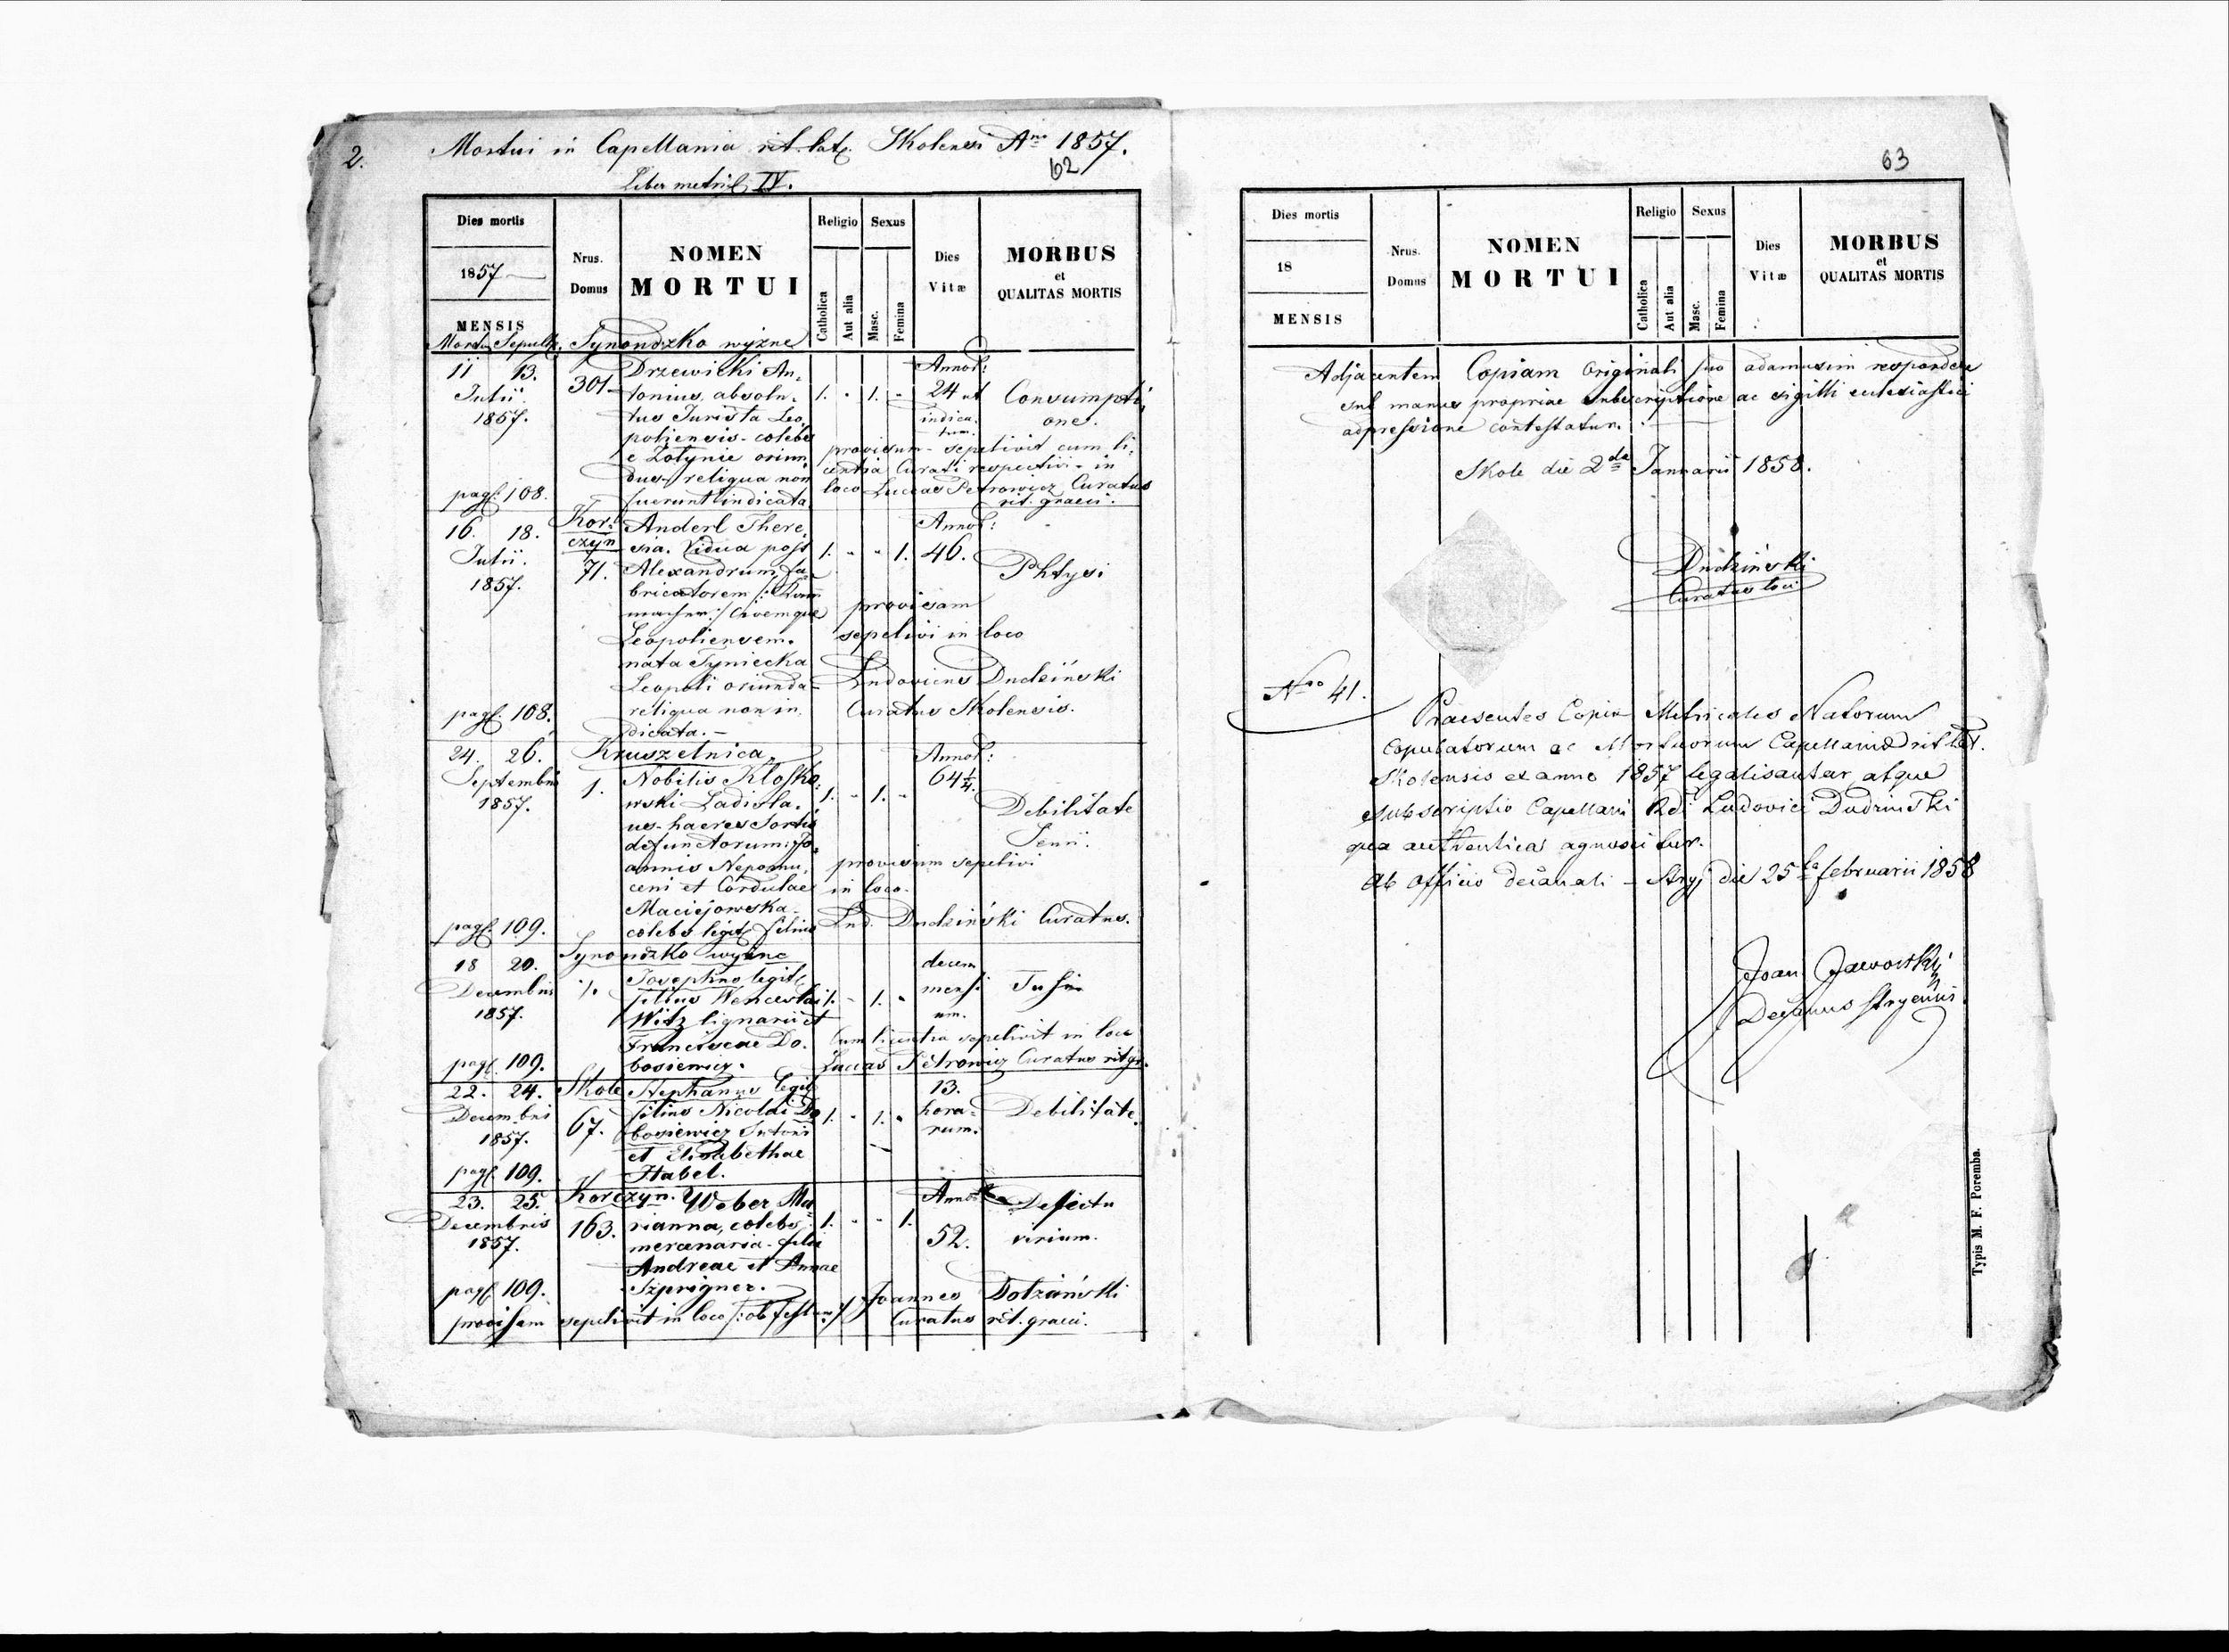 2.
Mortui in Capellania rit. lat. Skolensi Ao 1857.
62
Liber metric. IV.
Dies mortis
1857
MENSIS
Nrus.
Domus
NOMEN
MORTUI
Religio
Sexus
Catholica
Aut alia
Masc.
Femina
Dies
Vitæ
MORBUS
et
QUALITAS MORTIS
Mortu. Sepult. Synowdzko wyżne
11 13.
Julii.
1857.
pag. 108.
301
Drzewicki An-
tonius, absolu-
tus Jurista Leo-
poliensis - coelebs
e Zolynie oriun-
dus, reliqua non
fuerunt indicata
1. - 1. -
Annor:
24 ut
indica-
tum.
Consumpti-
one.
provisum - sepelivit cum li-
centia Curati respectivi - in
loco Luccas Petrowicz Curatus
rit. graeci.
16. 18.
Julii.
1857.
pag. 108.
Kor-
czyn
71.
Anderl There-
sia. Vidua post
Alexandrum fa-
bricatorem
Civemque
Leopoliensem.
nata Tyniecka
Leopoli oriunda -
reliqua non in-
dicata. -
1. - - 1.
Annor:
46.
Phtysi
provisam
sepelivi in loco
Ludovicus Dudziński
Curatus Skolensis.
24. 26.
Septembris
1857.
pag. 109.
Kruszelnica
1.
Nobilis Klosko-
wski Ladisla-
us - haeres Sortis
defunctorum: Jo-
annis Nepomu-
ceni et Cordulae
Maciejowska -
coelebs legit. filius
1. - 1. -
Annor:
64 1/4.
Debilitate
Senii.
provisum sepelivi
in loco.
Lud. Dudziński Curatus.
18 20.
Decembris
1857.
pag. 109.
Synowdzko wyżne
Josephus legit.
filius Wenceslai
Witz lignarii et
Franciscae Do-
bosiewicz.
1. - 1. -
decem
mensi-
um.
Tussi
Cum licentia sepelivit in loco
Luccas Petrowicz Curatus rit gr.
22. 24.
Decembris
1857.
pag. 109.
Skole
67.
Stephanus legit
filius Nicolai Do-
bosiewicz Sutoris
et Elisabethae
Habel.
1. - 1. -
13.
hora-
rum.
Debilitate.
23. 25.
Decembris
1857.
pag. 109.
Korczyn.
163.
Weber Ma-
rianna, coelebs
mercenaria - filia
Andreae et Annae
Szprigner.
1. - - 1.
Annor
52.
Defectu
virium.
provisam sepelivit in loco /: ob festum :/ Joannes Dolziński
Curatus rit. graeci.
63
Dies mortis
18
MENSIS
Nrus.
Domus
NOMEN
MORTUI
Religio
Sexus
Catholica
Aut alia
Masc.
Femina
Dies
Vitæ
MORBUS
et
QUALITAS MORTIS
Adjacentem Copiam Originali suo adamussim respondere
sub manus propriae subscriptione ac sigilli ecclesiastici
adpressione contestatur.
Skole die 2da Januarii 1858.
Dudziński
Curatus loci
Nro 41.
Praesentes Copia Metricales Natorum
Copulatorum ac Mortuorum Capellaniae rit lat.
Skolensis ex anno 1857 legalisantur atque
subscriptio Capellani Rdi Ludovici Dudzinski
qua authentica agnoscitur.
Ab Officio decanali - Stryj die 25ta februarii 1858
Joan Jaworskij
Decanus Stryensis
Typis M. F. Poremba.